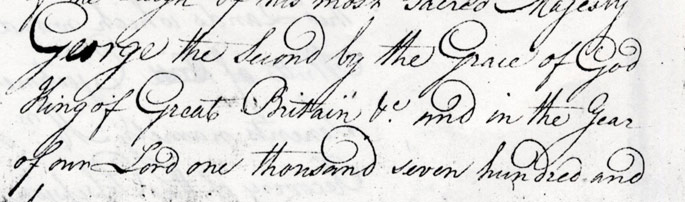 of his most Sacred Majesty
George the Second by the Grace of God
King of Great Britain &c. and in the Year
of our Lord one thousand seven hundred and